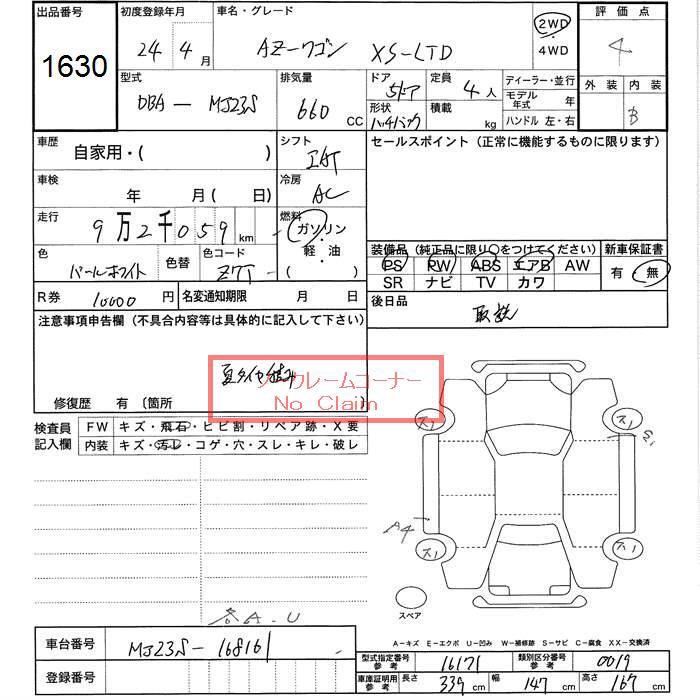 出品番号 初度登録年月 車名・グレード 評価点
1630 24年4月 AZ-ワゴン XS-LTD 2WD 4
4WD
型式 排気量 ドア 定員 ディーラー・並行 外装 内装
DBA - MJ23S 660 CC 5ドア 4人 モデル年式 年 B
形状 ハッチバック 積載 kg ハンドル 左・右
車歴 自家用・( ) シフト IAT セールスポイント (正常に機能するものに限ります)
車検 年 月( 日) 冷房 AC
走行 9万2千059 km 燃料 ガソリン・軽・油 ( )
装備品 (純正品に限り○をつけてください) 新車保証書
色 パールホワイト 色替 色コード Z7T PS PW ABS エアB AW 有 無
SR ナビ TV カワ
R券 10000円 名変通知期限 月 日 後日品 取説
注意事項申告欄 (不具合内容等は具体的に記入して下さい)
夏タイヤ
ノークレームコーナー
No Claim
修復歴 有 (箇所 )
検査員記入欄 FW キズ・飛石・ヒビ割・リペア跡・X要
内装 キズ・汚レ・コゲ・穴・スレ・キレ・破レ
ス1 ス1
A4
ス1 ス1
スペア
各A.U
A-キズ E-エクボ U-凹み W-補修跡 S-サビ C-腐食 XX-交換済
車台番号 MJ23S-168161
型式指定番号 参考 16171 類別区分番号 参考 0019
登録番号
車庫証明用 参考 長さ 339 cm 幅 147 cm 高さ 167 cm